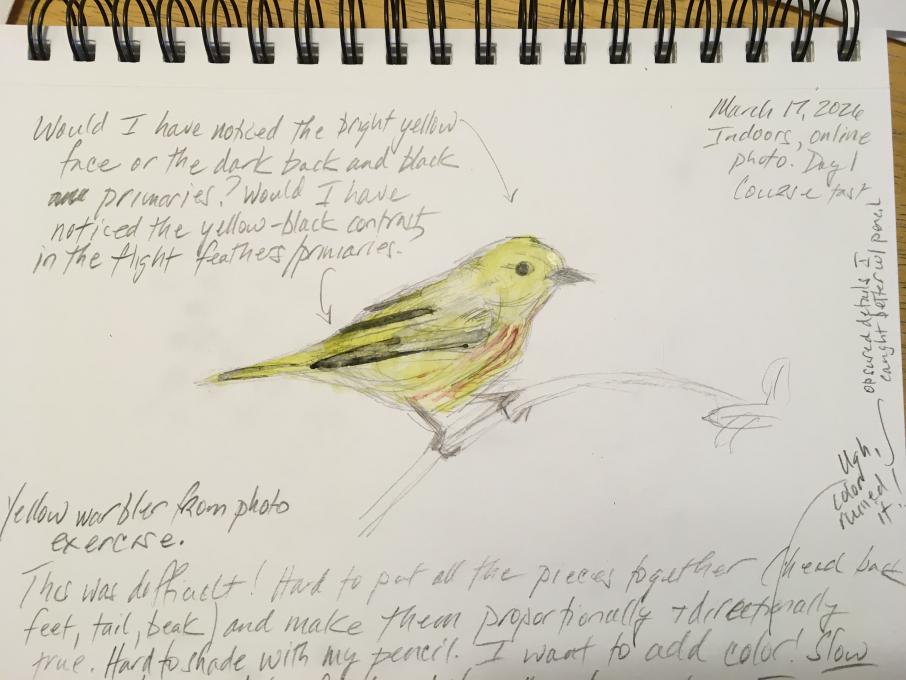 Would I have noticed the bright yellow
face or the dark back and black
primaries? Would I have
noticed the yellow-black contrast
in the flight feathers/primaries.
March 17, 2026
Indoors, online
photo. Day 1
Course task
obscured details I
caught better w/ pencil
Ugh,
color
ruined
it!
Yellow warbler from photo
exercise.
This was difficult! Hard to put all the pieces together (head back
feet, tail, beak) and make them proportionally + directionally
true. Hard to shade with my pencil. I want to add color! Slow